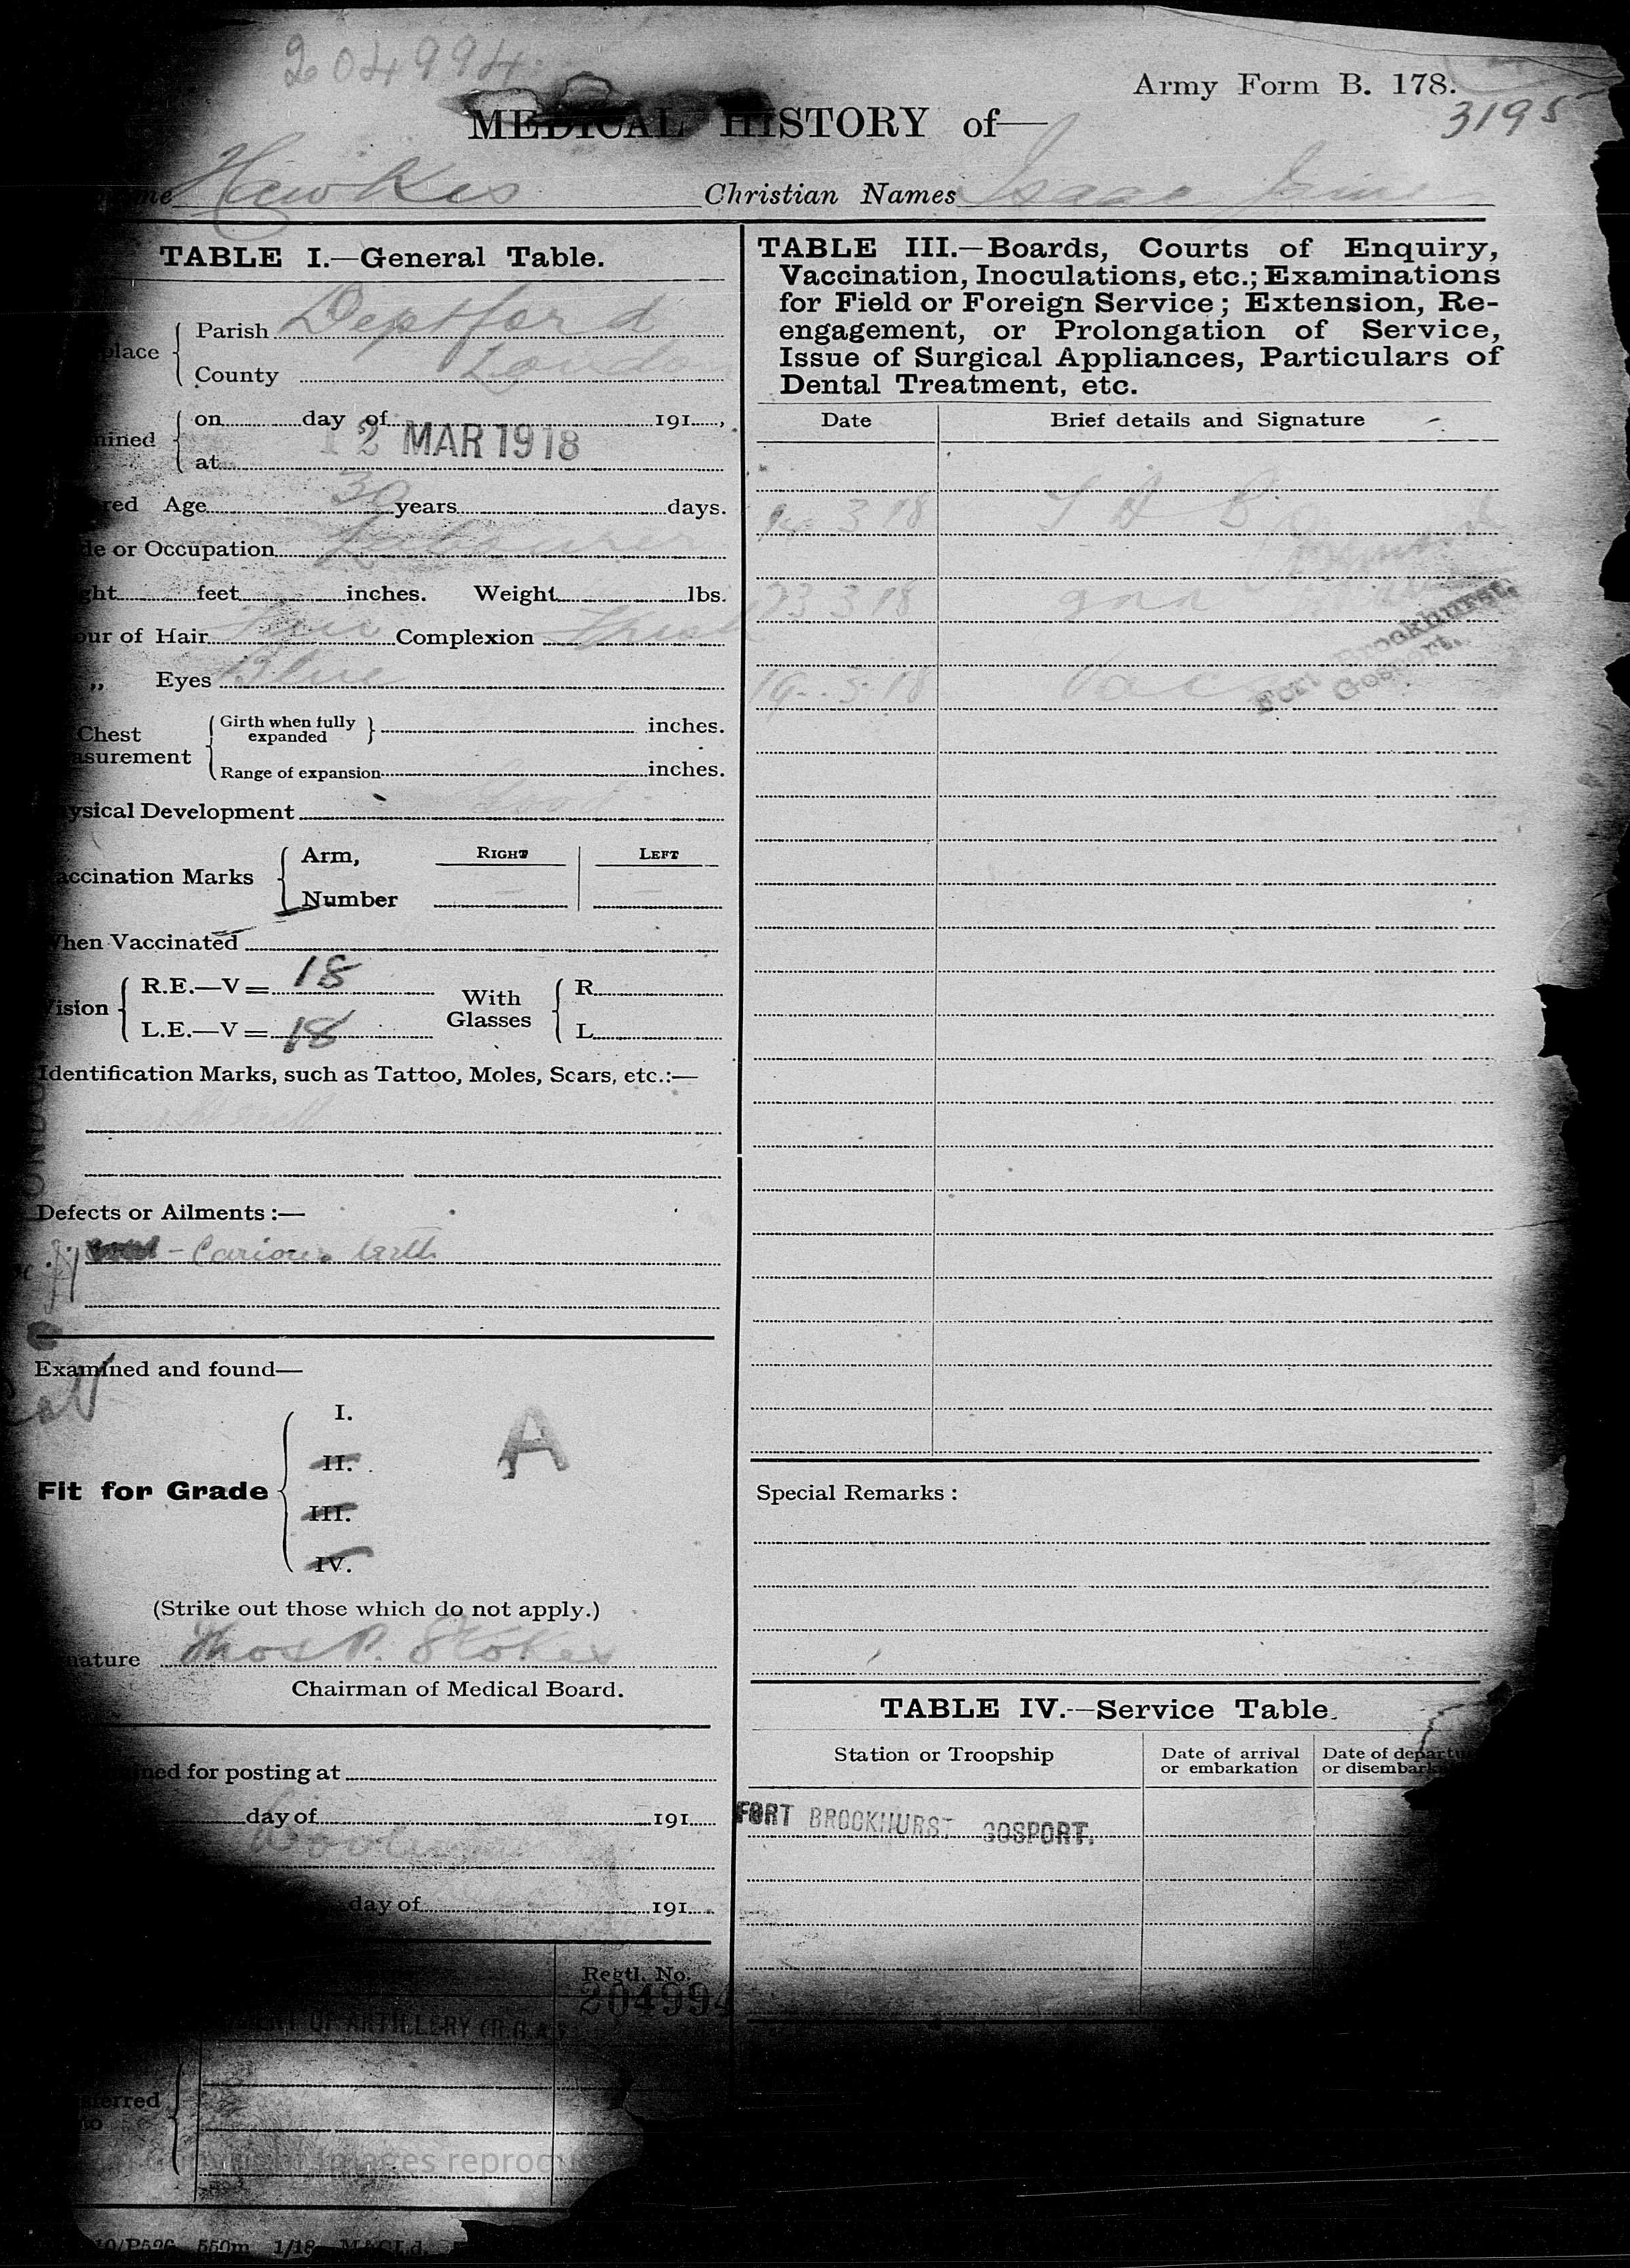 204994
Army Form B. 178.
3195
MEDICAL HISTORY of—
Hawkes Christian Names Isaac
TABLE I.—General Table.
Parish Deptford
place
County London
on day of 191 ,
12 MAR 1918
at
Age 30 years days.
or Occupation Labourer
feet inches. Weight lbs.
of Hair Fair Complexion Fresh
„ Eyes Blue
Chest
Girth when fully expanded inches.
Range of expansion inches.
Development Good
Vaccination Marks
Arm, RIGHT LEFT
Number — —
When Vaccinated
Vision
R.E.—V = 18 With Glasses R
L.E.—V = 18 L
Identification Marks, such as Tattoo, Moles, Scars, etc.:—
Defects or Ailments :—
- Carious teeth
Examined and found—
Fit for Grade
I.
II.
III.
IV.
A
(Strike out those which do not apply.)
Thos P. Stokes
Chairman of Medical Board.
for posting at
day of 191
day of 191
Regtl. No.
204994
OF ARTILLERY (R.G.A.)
550m 1/18
TABLE III.—Boards, Courts of Enquiry,
Vaccination, Inoculations, etc.; Examinations
for Field or Foreign Service; Extension, Re-
engagement, or Prolongation of Service,
Issue of Surgical Appliances, Particulars of
Dental Treatment, etc.
Date Brief details and Signature
3 18 T A B
23 3 18
18 Vac
Fort Brockhurst,
Gosport.
Special Remarks :
TABLE IV.—Service Table.
Station or Troopship Date of arrival or embarkation Date of
or
FORT BROCKHURST GOSPORT.
Images